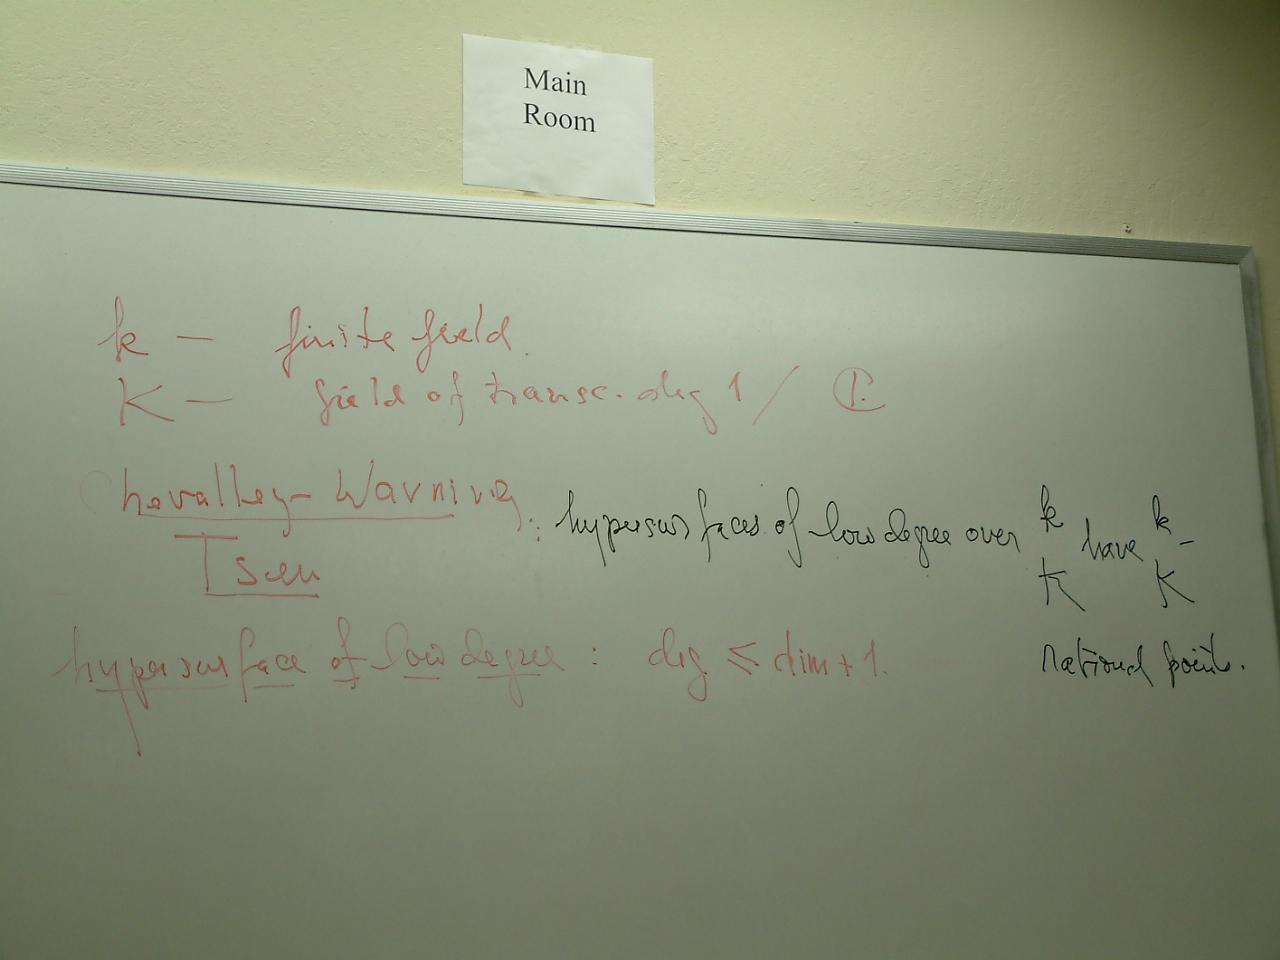 Main
Room
k — finite field.
K — field of transc. deg 1 / ℂ.
Chevalley-Warning
Tsen : hypersurfaces of low degree over k K have k K - rational points.
hypersurface of low degree : deg ≤ dim + 1.